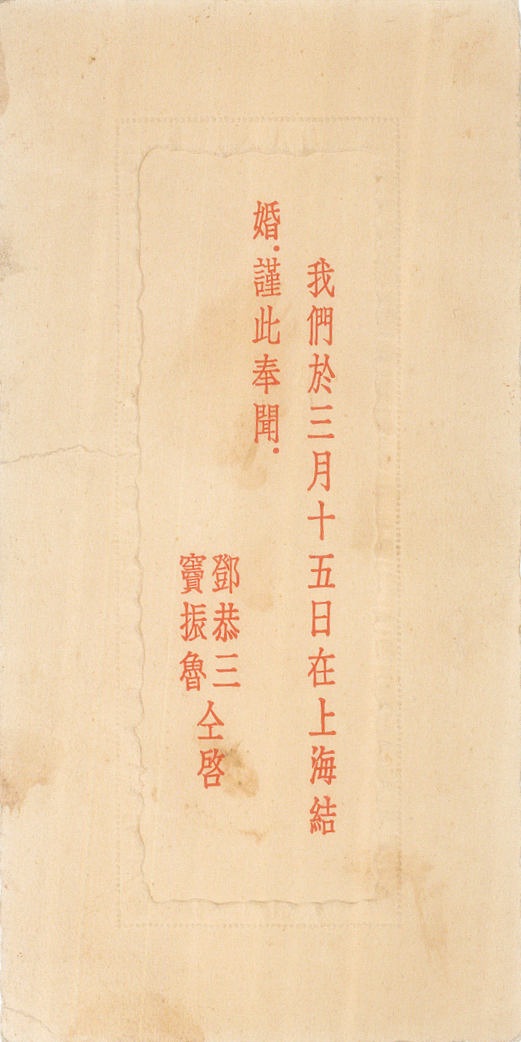 我們於三月十五日在上海結
婚．謹此奉聞．
鄧恭三
竇振魯
仝啓